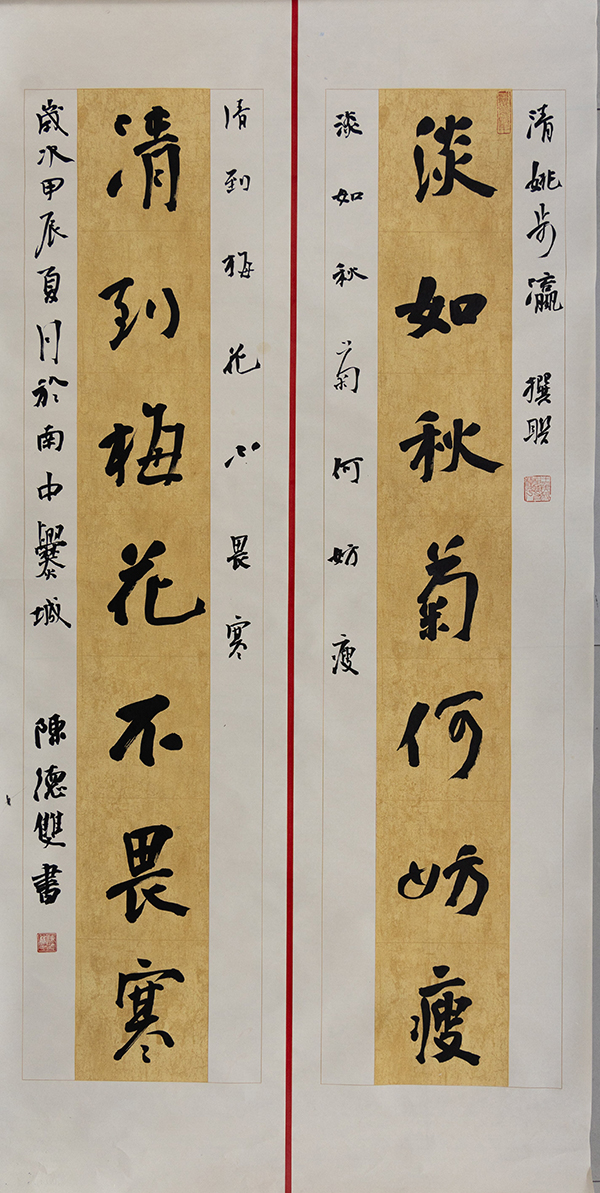 清姚步瀛 撰联
淡如秋菊何妨瘦
淡如秋菊何妨瘦
清到梅花不畏寒
清到梅花不畏寒
歲次甲辰夏月於南中爨城 陳德雙書